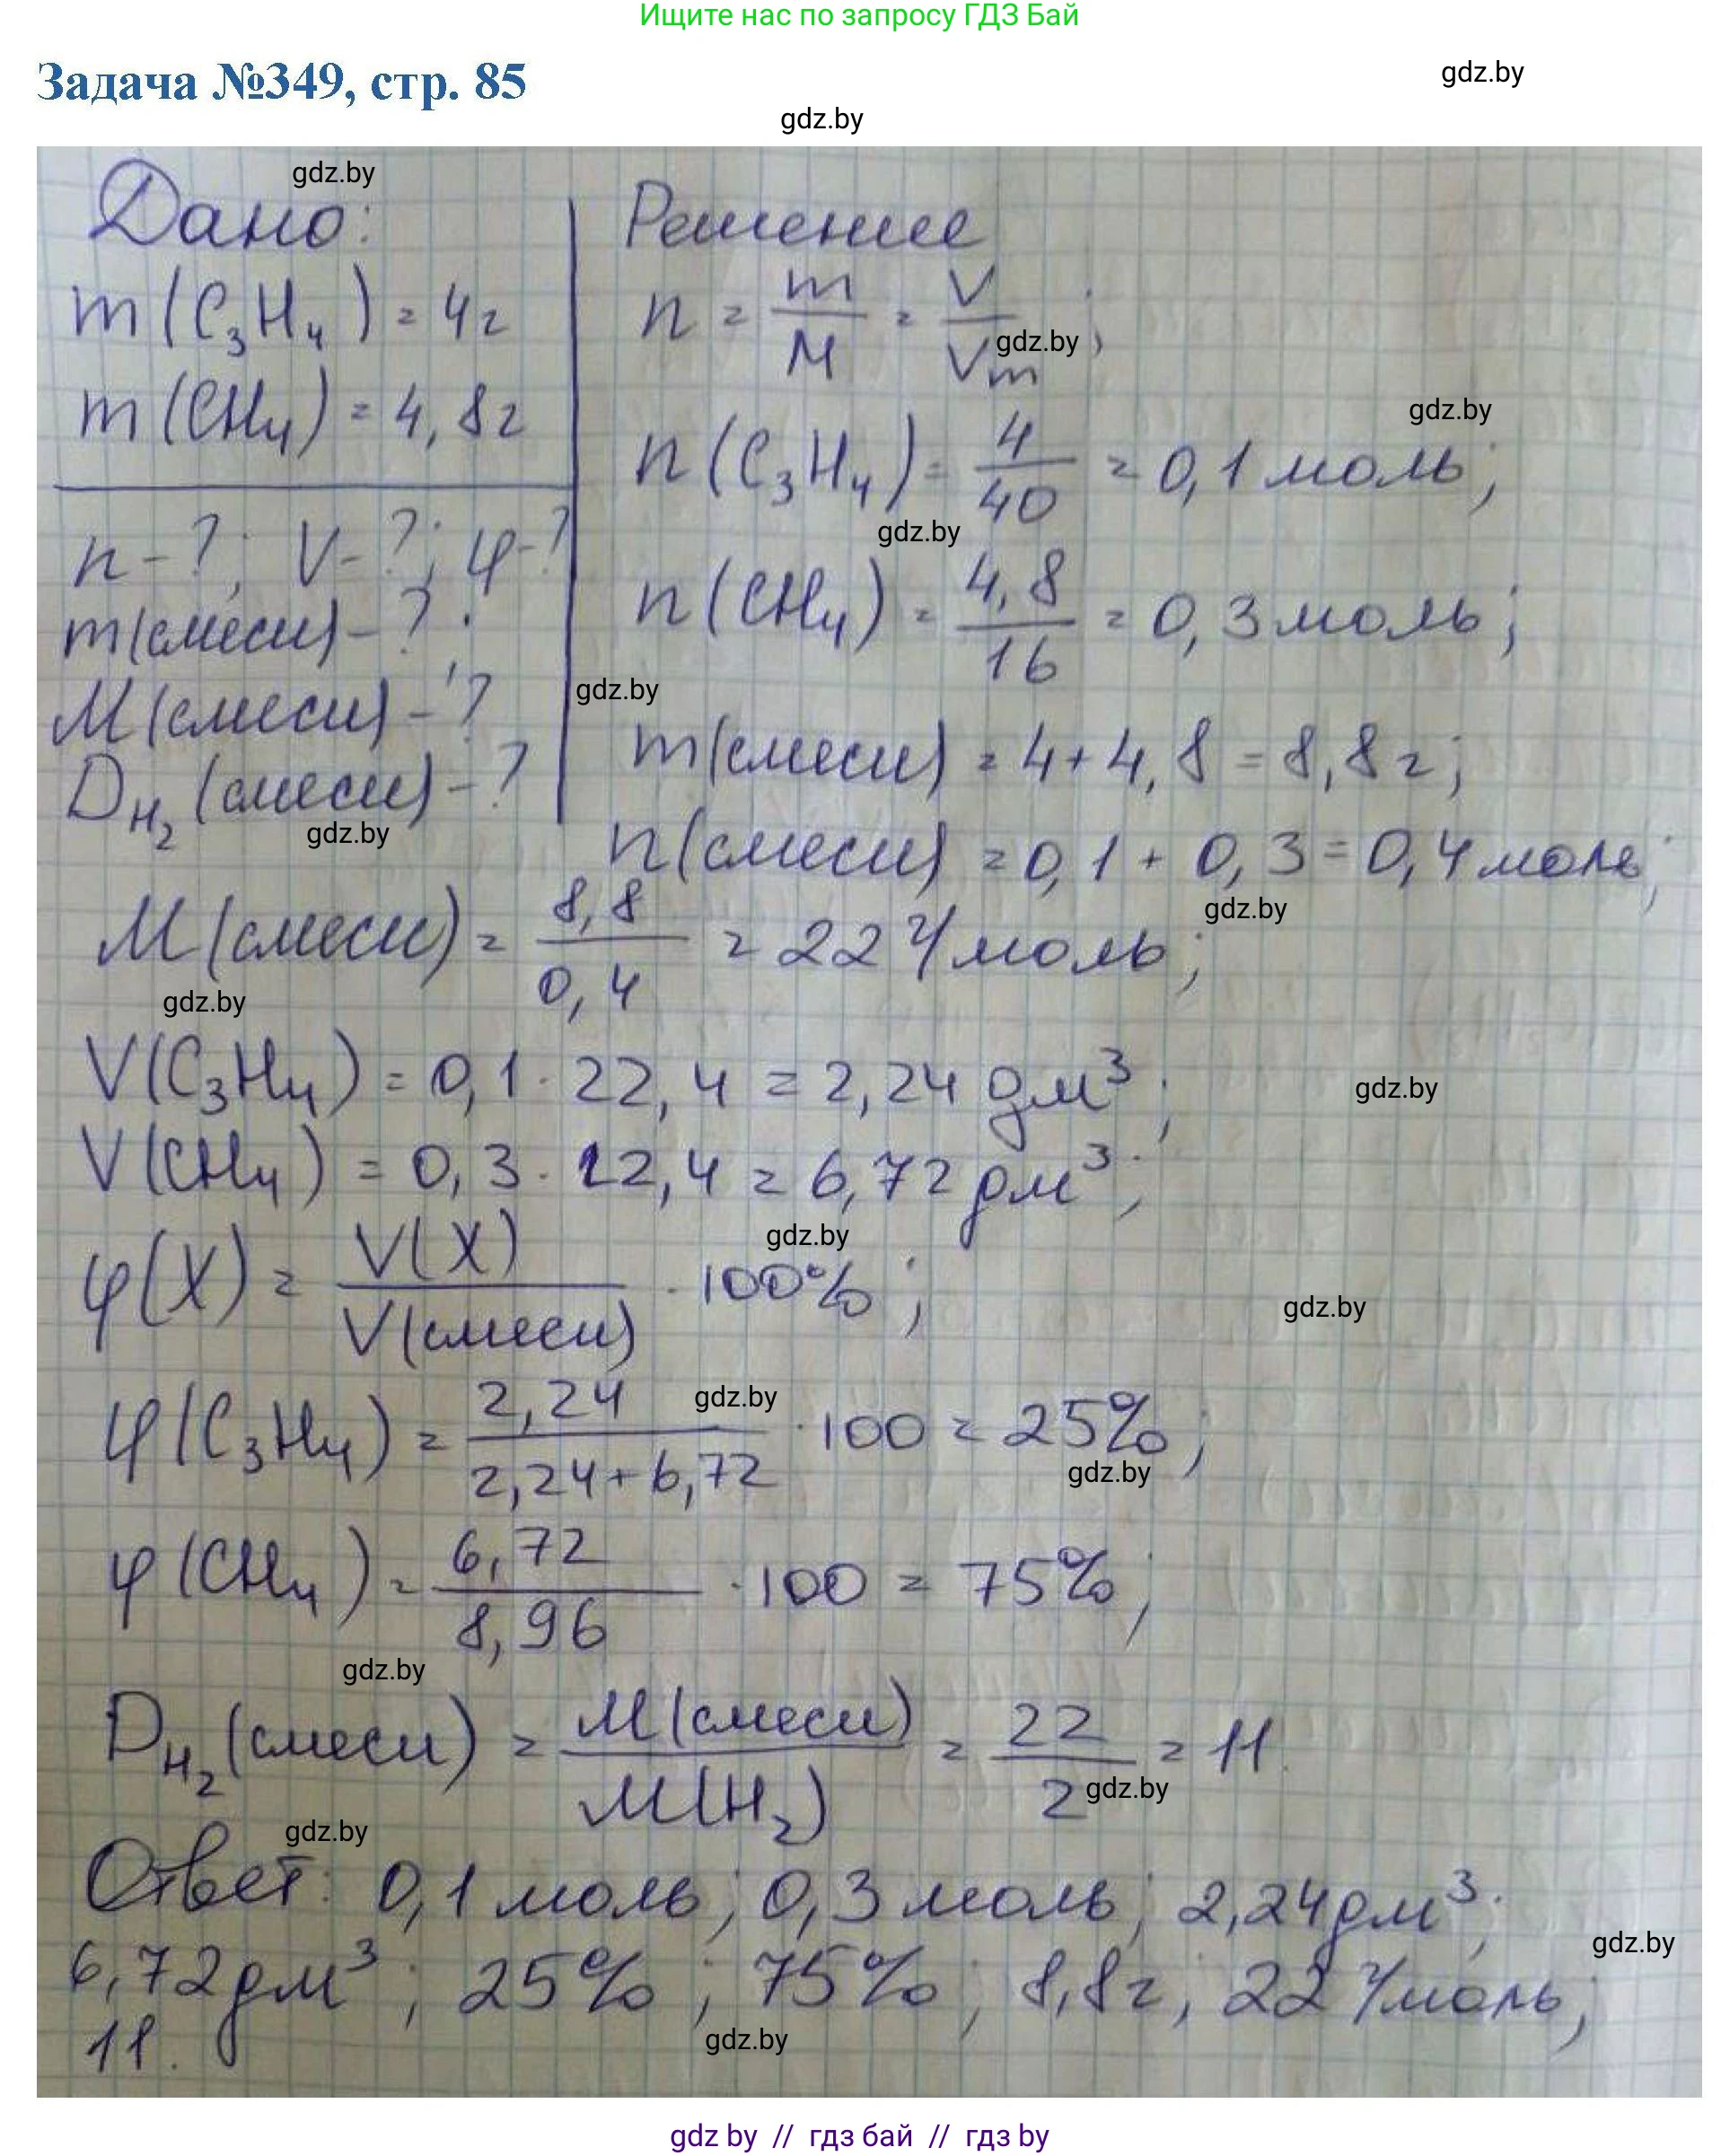 Ищите нас по запросу ГДЗ Бай
Задача №349, стр. 85
gdz.by
gdz.by
gdz.by
Дано:
m(C₃H₄) = 4г
m(CH₄) = 4,8г
n-?; V-?; φ-?
m(смеси)-?;
M(смеси)-?
D_H₂(смеси)-?
gdz.by
Решение
n = m/M = V/Vm;
gdz.by
gdz.by
n(C₃H₄) = 4/40 = 0,1 моль;
gdz.by
n(CH₄) = 4,8/16 = 0,3 моль;
gdz.by
m(смеси) = 4+4,8 = 8,8г;
n(смеси) = 0,1 + 0,3 = 0,4 моль;
gdz.by
M(смеси) = 8,8/0,4 = 22 г/моль;
gdz.by
V(C₃H₄) = 0,1 · 22,4 = 2,24 дм³;
gdz.by
V(CH₄) = 0,3 · 22,4 = 6,72 дм³;
gdz.by
φ(X) = V(X)/V(смеси) · 100%;
gdz.by
gdz.by
φ(C₃H₄) = 2,24/2,24+6,72 · 100 = 25%;
gdz.by
φ(CH₄) = 6,72/8,96 · 100 = 75%;
gdz.by
D_H₂(смеси) = M(смеси)/M(H₂) = 22/2 = 11.
gdz.by
gdz.by
Ответ: 0,1 моль; 0,3 моль; 2,24 дм³;
gdz.by
6,72 дм³; 25%; 75%; 8,8г; 22 г/моль;
11.
gdz.by
gdz by // гдз бай // гдз by